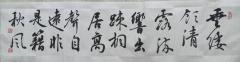 垂緌
飲清
露流
響出
疎桐
居高
聲自
遠非
是籍
秋風